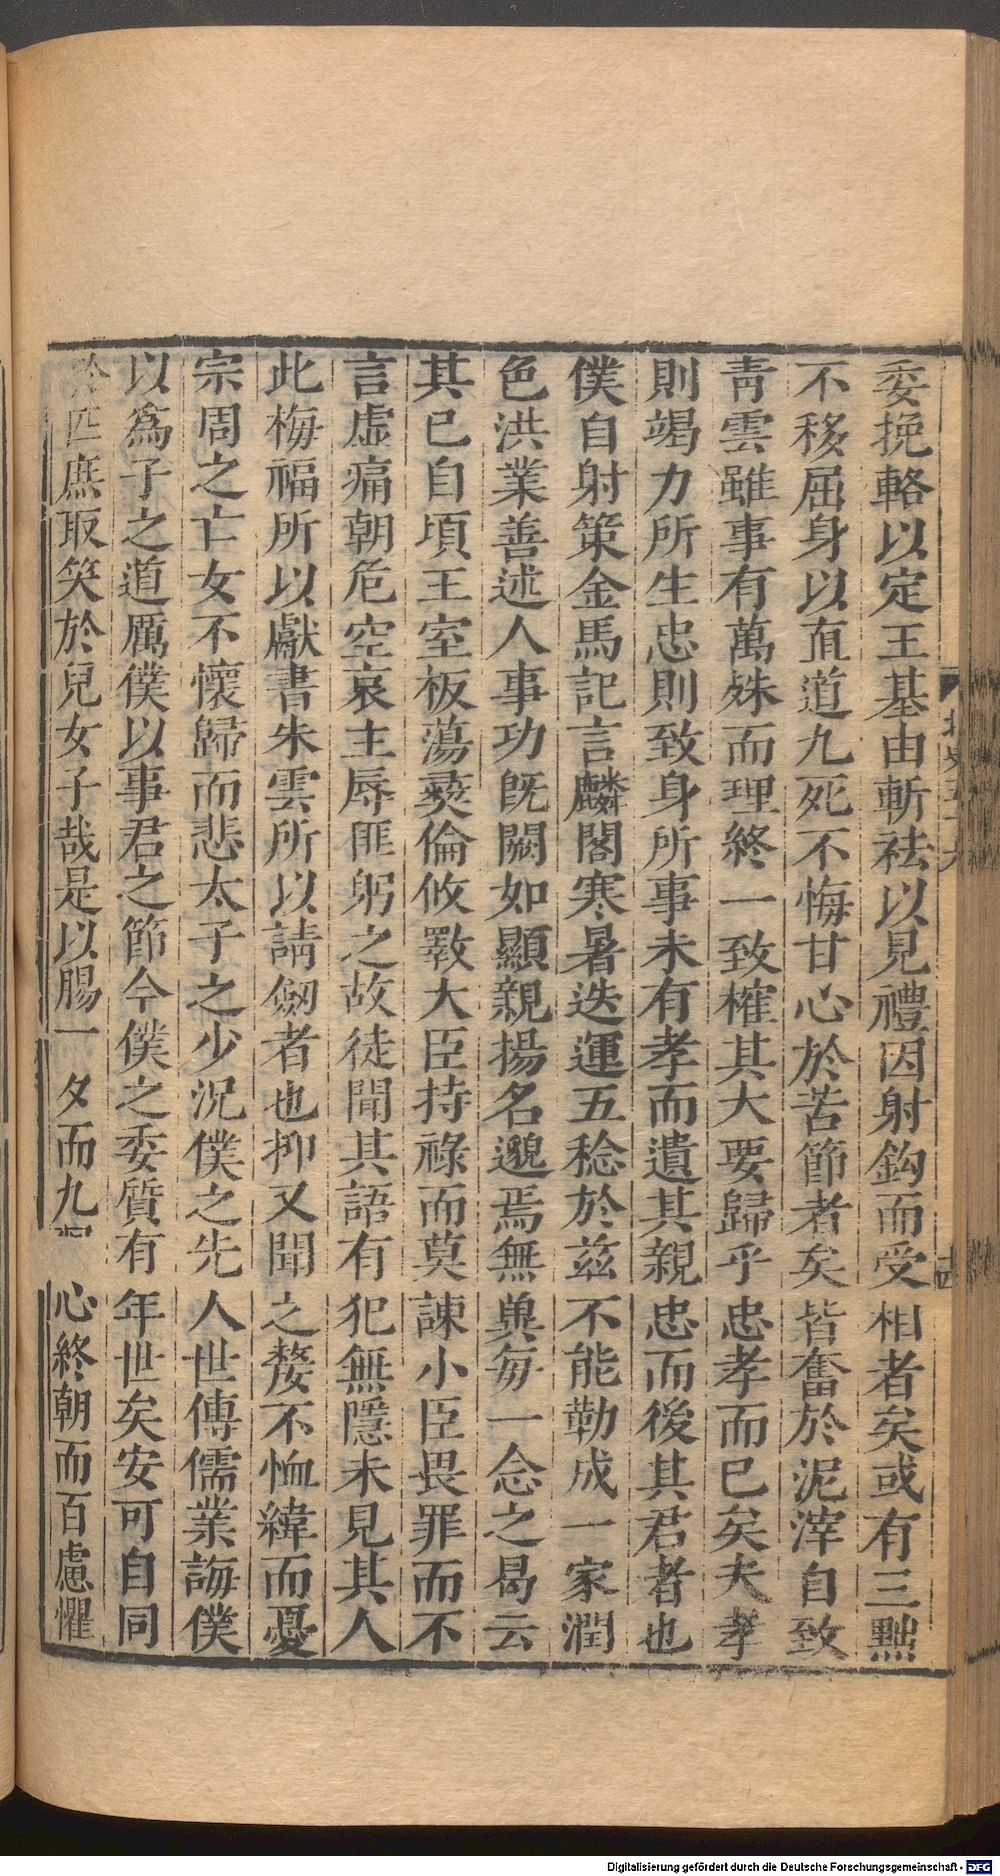 委挽輅以定王基由斬袪以見禮因射鈎而受相者矣或有三黜
不移屈身以直道九死不悔甘心於苦節者矣皆奮於泥滓自致
靑雲雖事有萬殊而理終一致榷其大要歸乎忠孝而已矣夫孝
則竭力所生忠則致身所事未有孝而遺其親忠而後其君者也
僕自射策金馬記言麟閣寒暑迭運五稔於兹不能勒成一家潤
色洪業善述人事功旣闕如顯親揚名邈焉無兾每一念之曷云
其已自頃王室板蕩彞倫攸斁大臣持祿而莫諫小臣畏罪而不
言虛痛朝危空哀主辱匪躬之故徒聞其語有犯無隱未見其人
此梅福所以獻書朱雲所以請劒者也抑又聞之嫠不恤緯而憂
宗周之亡女不懷歸而悲太子之少況僕之先人世傳儒業誨僕
以爲子之道厲僕以事君之節今僕之委質有年世矣安可自同
於匹庶取笑於兒女子哉是以腸一夕而九回心終朝而百慮懼
北史五十六
十四
Digitalisierung gefördert durch die Deutsche Forschungsgemeinschaft - DFG